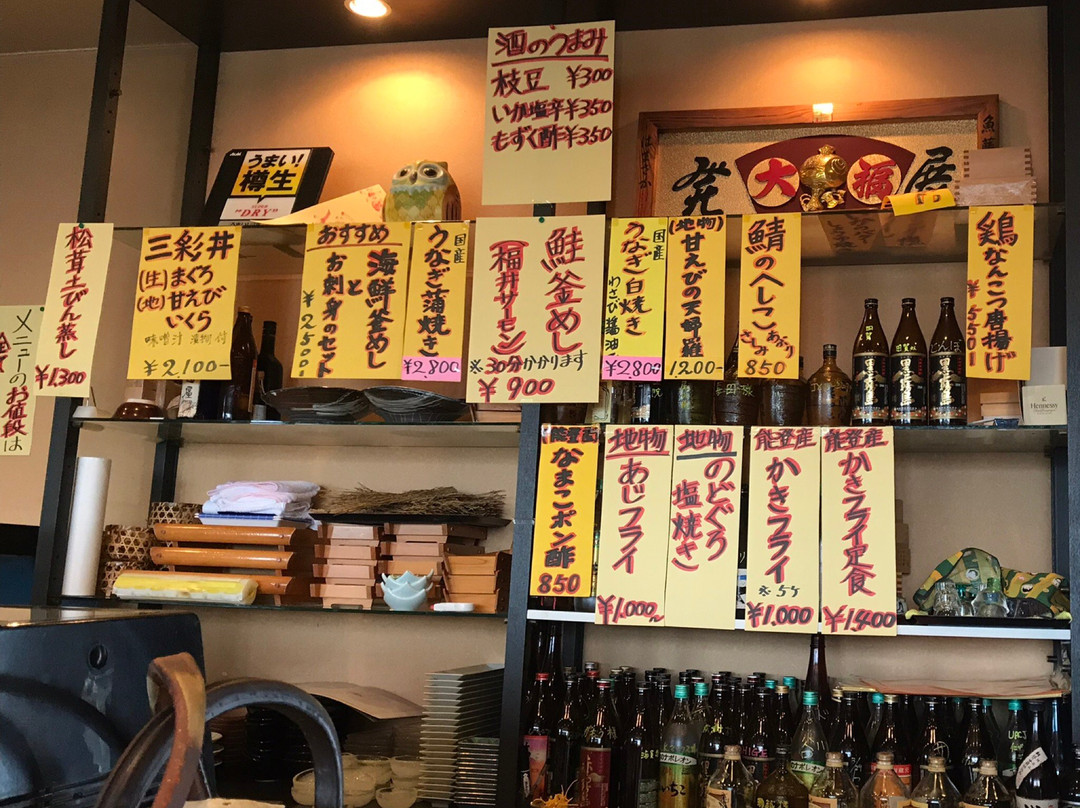 酒のうまみ
枝豆 ¥300
いか塩辛¥350
もずく酢¥350
Asahi
うまい!
樽生
SUPER
DRY
発
大
福
展
松茸土びん蒸し
¥1,300
三彩丼
(生)まぐろ
(地)甘えび
いくら
味噌汁 漬物付
¥2,100-
おすすめ
海鮮釜めし
と
お刺身のセット
¥2500
国産
うなぎ蒲焼き
¥2,800
鮭釜めし
(福井サーモン)
※30分かかります
¥900
国産
うなぎ白焼き
わさび醤油
¥2800
(地物)
甘えびの天婦羅
1200-
鯖のへしこ
さしみあぶり
850
鶏なんこつ唐揚げ
¥550
メニューのお値段は
能登産
なまこポン酢
850
地物
あじフライ
¥1,000
地物
のどぐろ
塩焼き
能登産
かきフライ
※5ケ
¥1,000
能登産
かきフライ定食
¥1,400
Hennessy